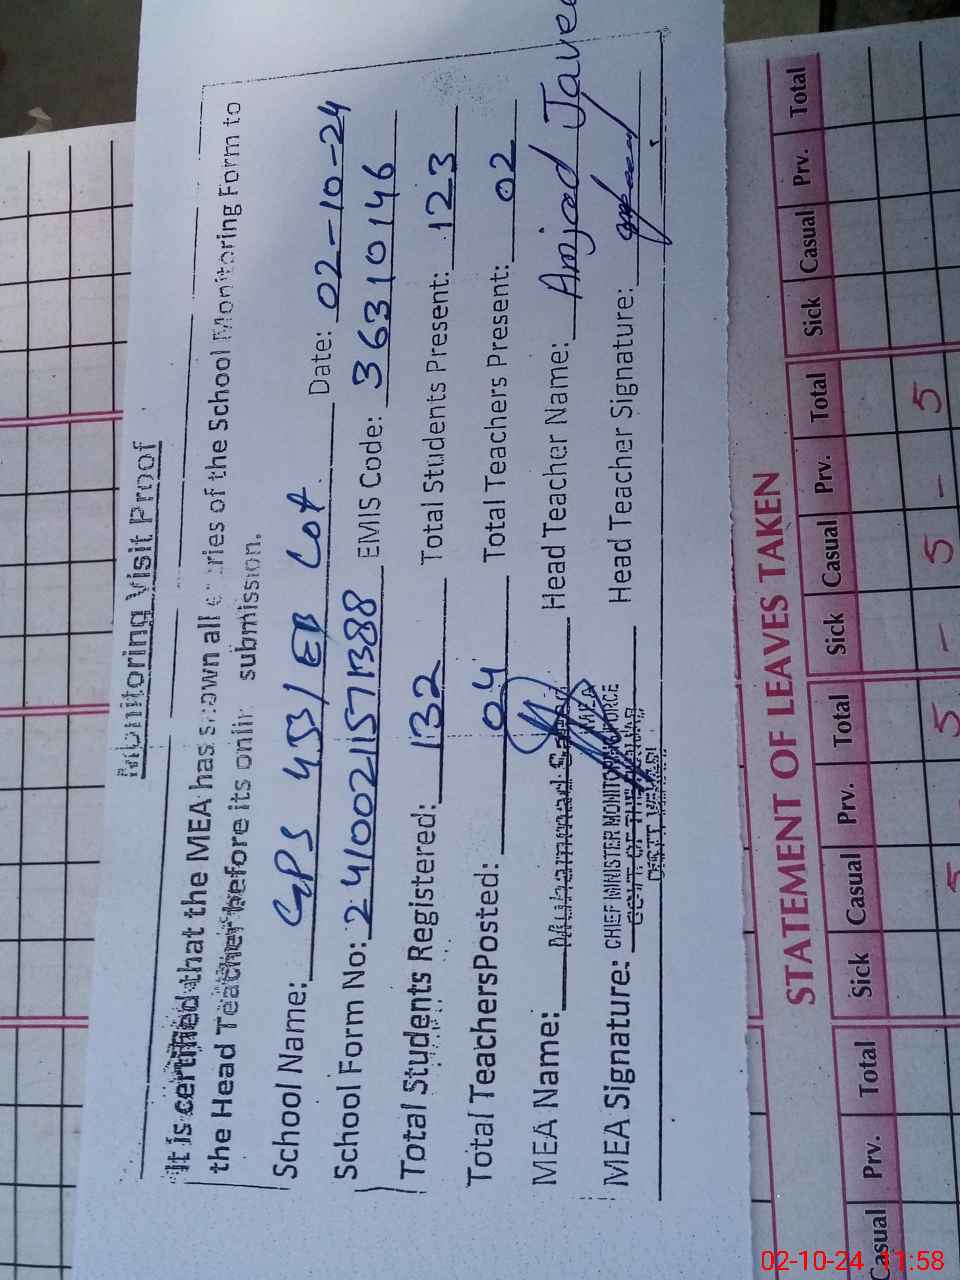 Monitoring Visit Proof
It is certified that the MEA has shown all entries of the School Monitoring Form to
the Head Teacher before its online submission.
School Name: GPS 453/EB Lot Date: 02-10-24
School Form No: 2410021571388 EMIS Code: 36310146
Total Students Registered: 132 Total Students Present: 123
Total TeachersPosted: 04 Total Teachers Present: 02
MEA Name: Muhammad Head Teacher Name: Amjad Javed
MEA
MEA Signature: CHIEF MINISTER MONITORING FORCE Head Teacher Signature:
GOVT OF THE PUNJAB
DISTT VEHARI
STATEMENT OF LEAVES TAKEN
Casual Prv. Total Sick Casual Prv. Total Sick Casual Prv. Total Sick Casual Prv. Total
5 5 - 5 - 5
02-10-24 11:58